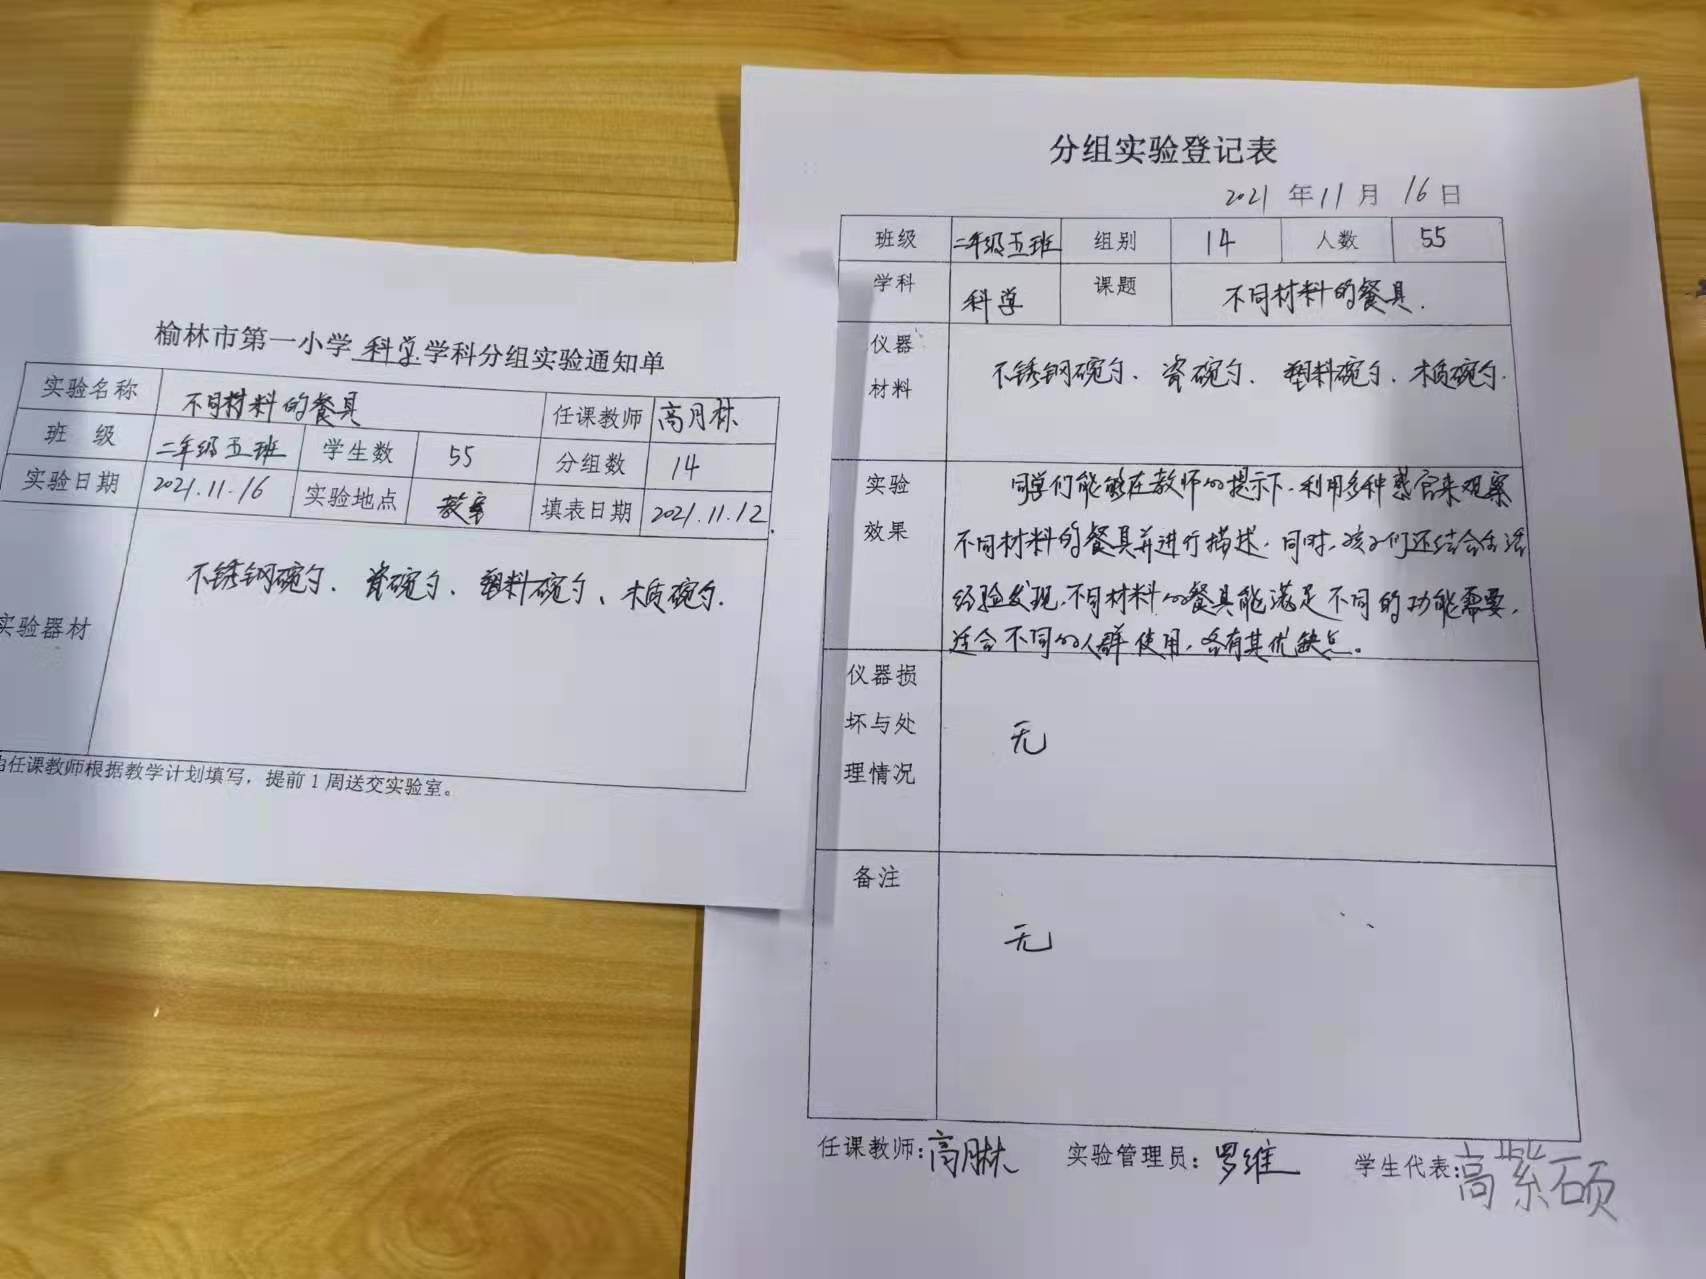 榆林市第一小学科学学科分组实验通知单
实验名称 不同材料的餐具 任课教师 高月林
班 级 二年级五班 学生数 55 分组数 14
实验日期 2021.11.16 实验地点 教室 填表日期 2021.11.12.
实验器材 不锈钢碗勺、瓷碗勺、塑料碗勺、木质碗勺.
由任课教师根据教学计划填写，提前1周送交实验室。
分组实验登记表
2021 年 11 月 16 日
班级 二年级五班 组别 14 人数 55
学科 科学 课题 不同材料的餐具.
仪器
材料
不锈钢碗勺、瓷碗勺、塑料碗勺、木质碗勺.
实验
效果
同学们能够在教师的提示下,利用多种感官来观察
不同材料的餐具并进行描述.同时,孩子们还结合生活
经验发现,不同材料的餐具能满足不同的功能需要,
适合不同的人群使用,各有其优缺点。
仪器损
坏与处
理情况
无
备注
无
任课教师:高月林 实验管理员:罗维 学生代表:高紫硕